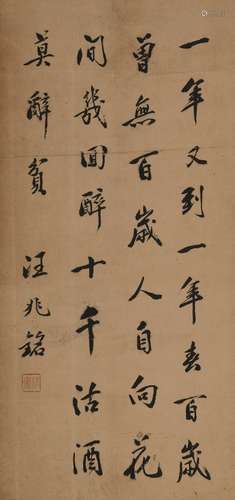 一年又到一年春百歲
曾無百歲人自向花
間幾回醉十千沽酒
莫辭貧
汪兆銘